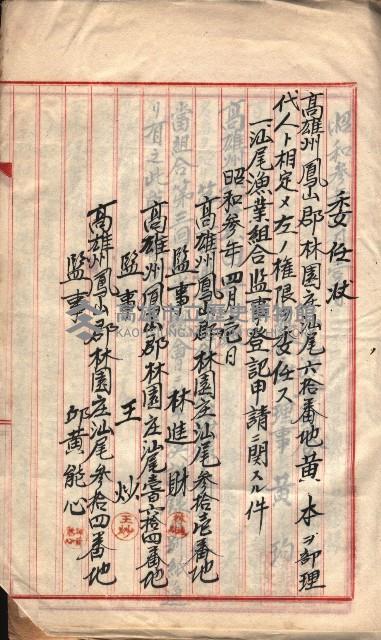 委任状
高雄州鳳山郡林園庄汕尾六拾番地黄本ヲ部理
代人ト相定メ左ノ権限ヲ委任ス
一汕尾漁業組合監事登記申請ニ関スル件
昭和参年四月 日
高雄州鳳山郡林園庄汕尾参拾壱番地
監事 林進財
高雄州鳳山郡林園庄汕尾壱百六拾四番地
監事 王炒
高雄州鳳山郡林園庄汕尾参拾四番地
監事 邱黄能心
高雄市立歴史博物館